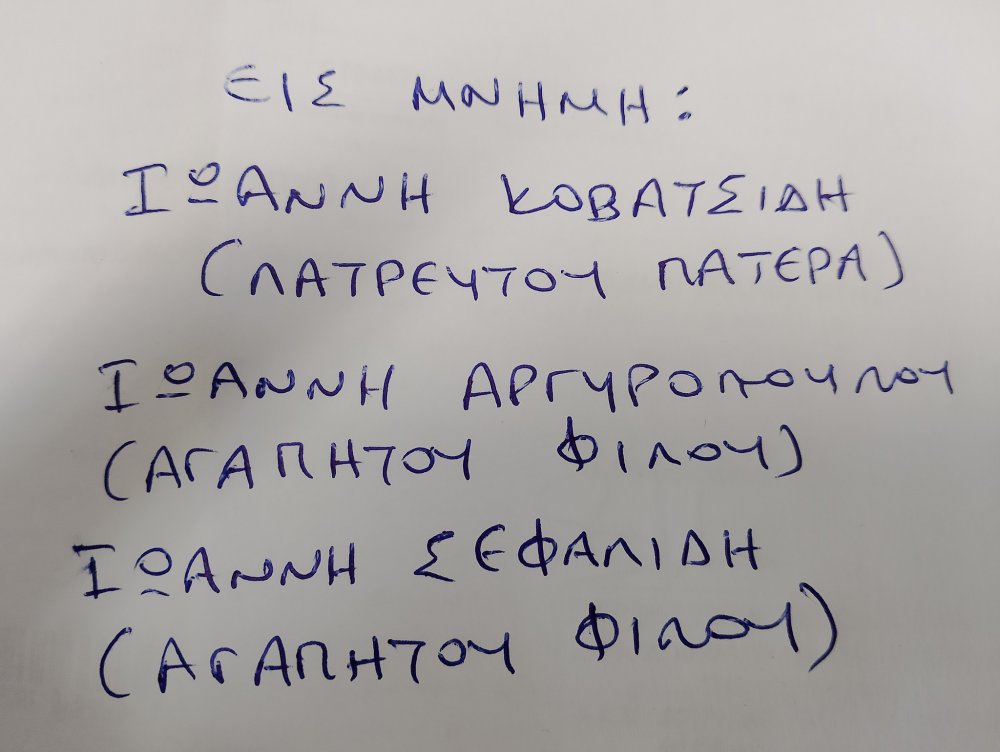 ΕΙΣ ΜΝΗΜΗ:
ΙΩΑΝΝΗ ΚΟΒΑΤΣΙΔΗ
(ΛΑΤΡΕΥΤΟΥ ΠΑΤΕΡΑ)
ΙΩΑΝΝΗ ΑΡΓΥΡΟΠΟΥΛΟΥ
(ΑΓΑΠΗΤΟΥ ΦΙΛΟΥ)
ΙΩΑΝΝΗ ΣΕΦΑΛΙΔΗ
(ΑΓΑΠΗΤΟΥ ΦΙΛΟΥ)